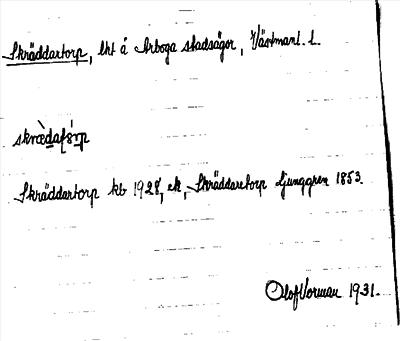 Skräddartorp, lht å Arboga stadsägor, Västmanl. l.
Skräddartorp kb 1928, ek, Skräddaretorp Ljunggren 1853.
Olof Vorman 1931.